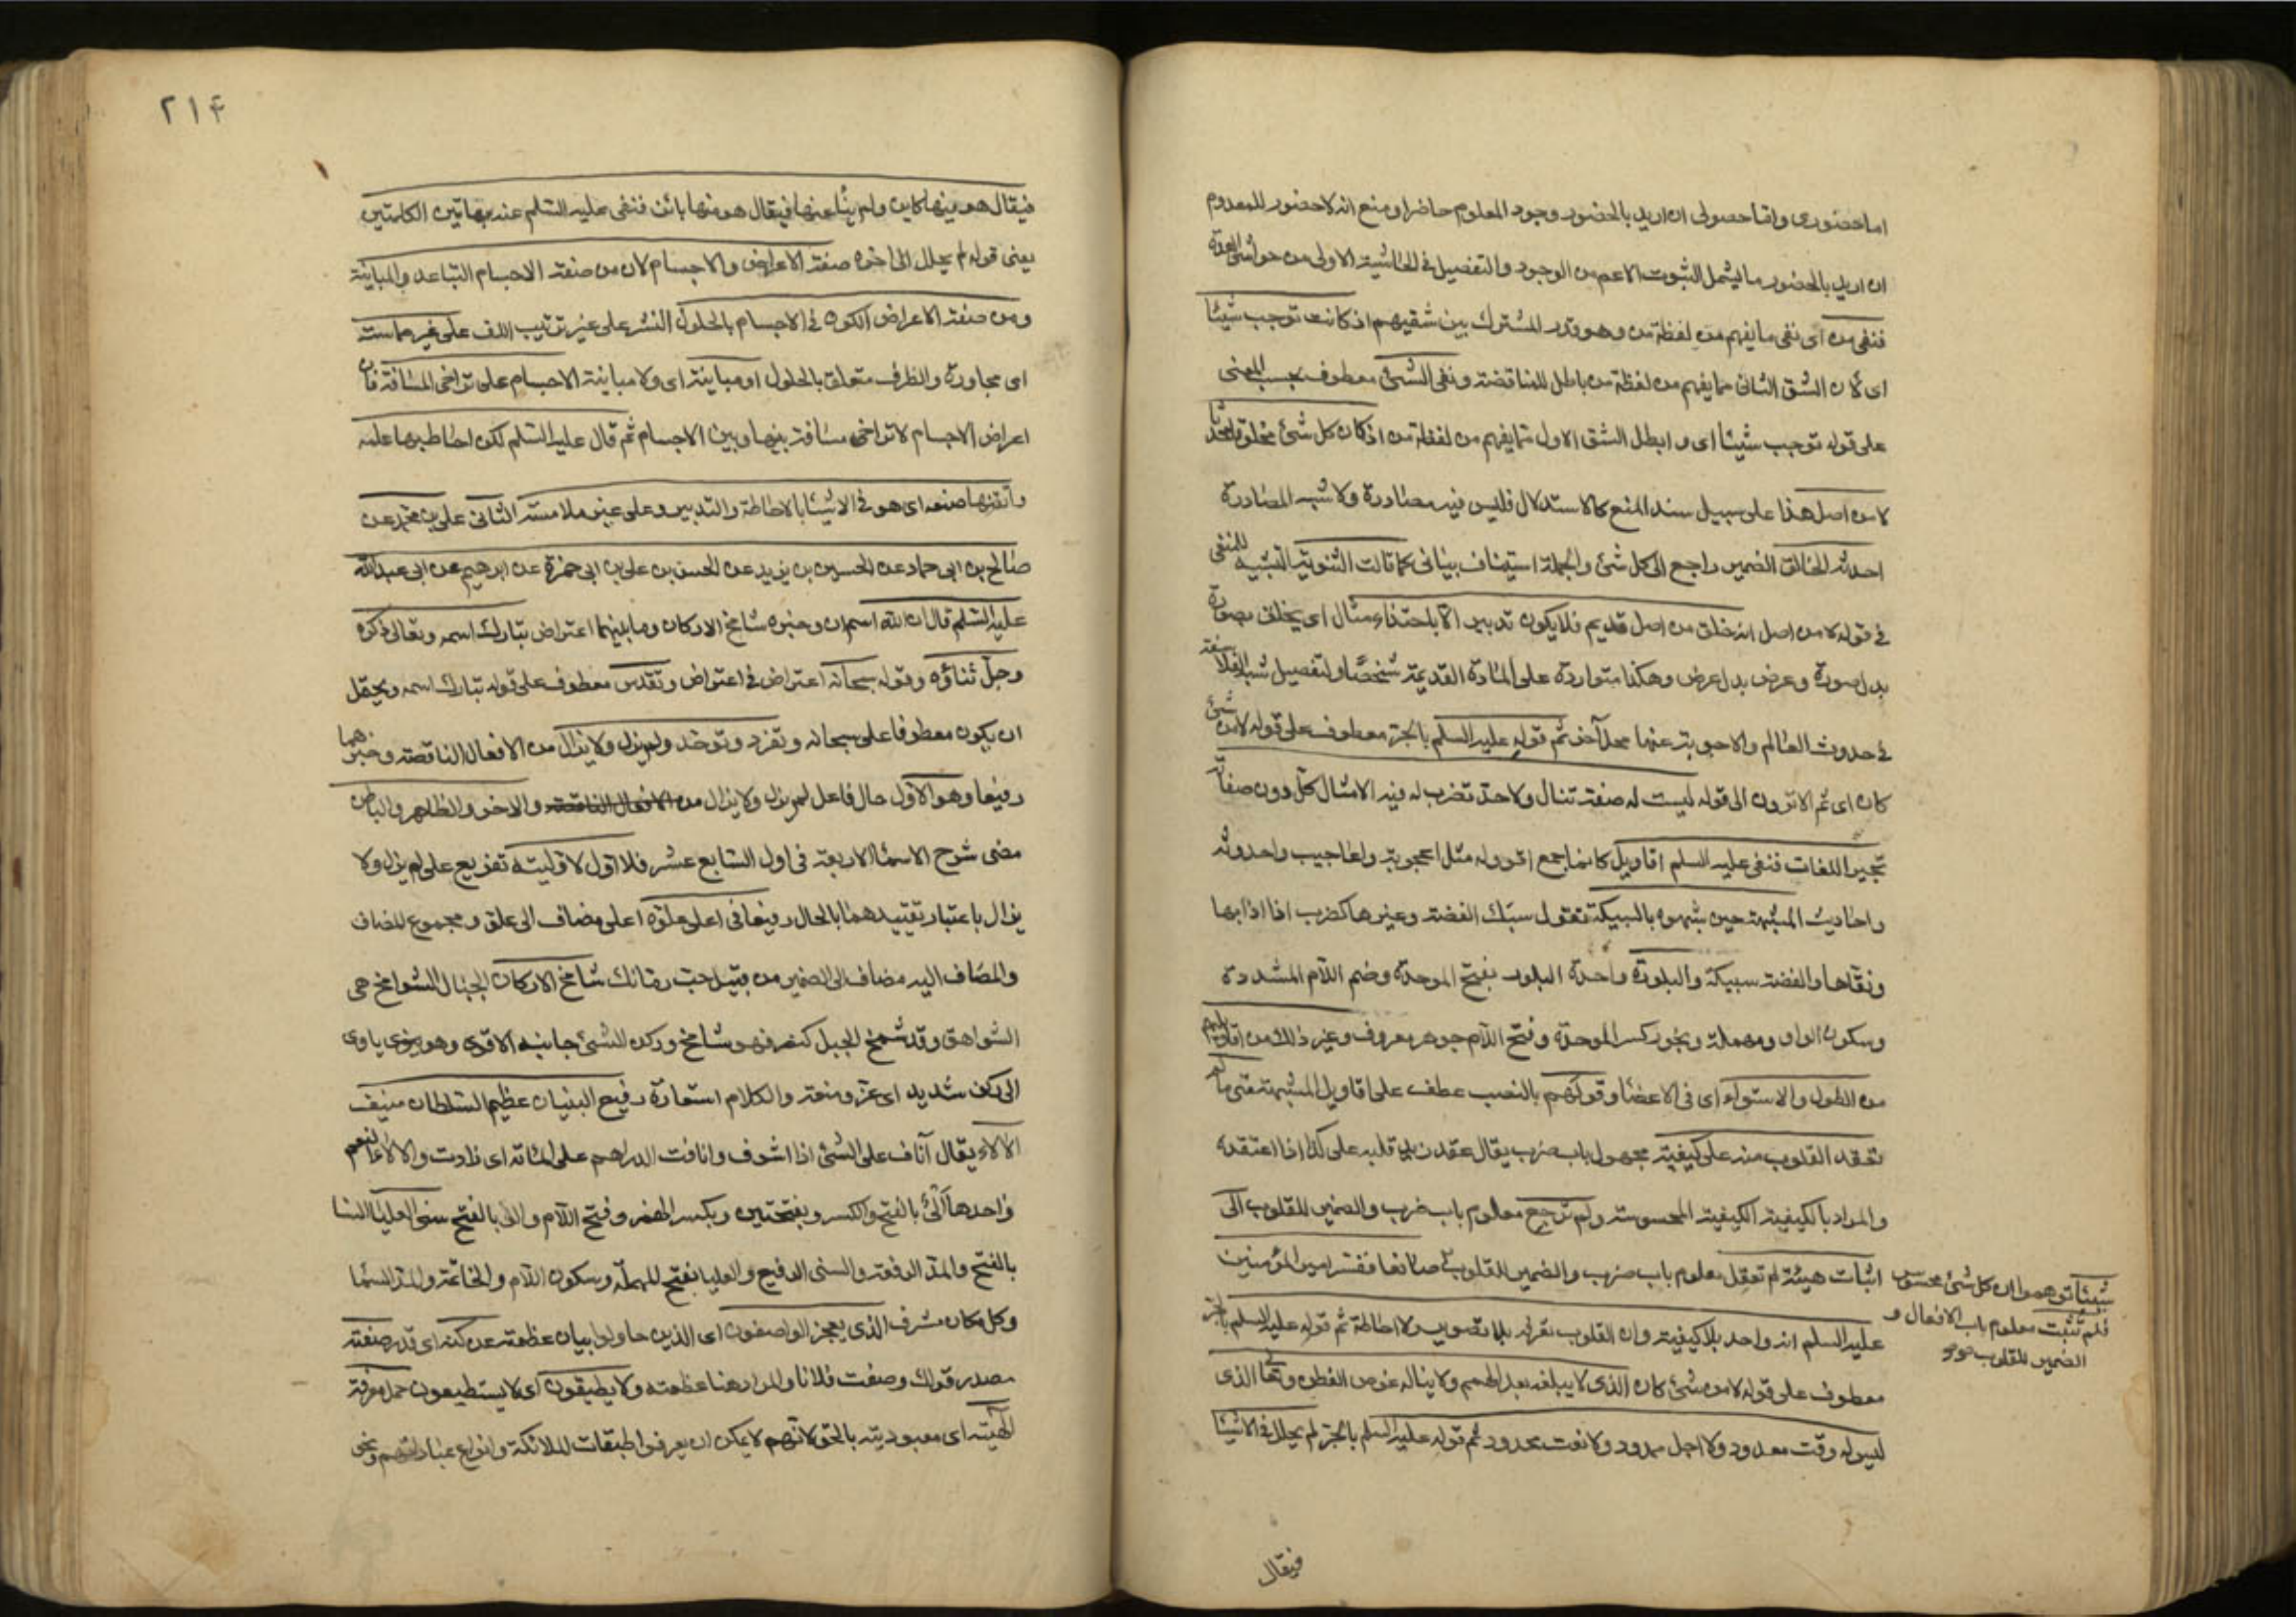 اما حضوري واما حصولي ان اريد بالحضور وجود المعلوم حاضرا ومنع انه لا حضور للمعدوم
ان اريد بالحضور ما يشمل الثبوت الاعم من الوجود والتفصيل في الحاشية الاولى من حواشي العدة
فنفى من اى نفى ما يفهم من لفظة من وهو قدر المشترك بين شقيهم اذ كانت توجب شيئا
اى لان الشق الثانى مما يفهم من لفظة من باطل للمناقضة ونفى الشىء معطوف بحسب المعنى
على قوله توجب شيئا اى و ابطل الشق الاول مما يفهم من لفظة من اذ كان كل شىء مخلوقا محدثا
لا من اصل هذا على سبيل سند المنع كالاستدلال فليس فيه مصادرة ولا شبه المصادرة
احدثه الخالق الضمير راجع الى كل شىء والجملة استيناف بيانى كما قالت الثنوية التشبيه للمنفى
في قوله لا من اصل انه خلق من اصل قديم فلا يكون تدبير الا باحتذاء مثال اى يخلق صورة
بدل صورة وعرض بدل عرض وهكذا متواردة على المادة القديمة شخصا ولتفصيل شبه الفلاسفة
في حدوث العالم والاجوبة عنها محل آخر ثم قوله عليه السلم بالجر معطوف على قوله لا من شىء
كان اى ثم الا ترون الى قوله ليست له صفة تنال ولا حد تضرب له فيه الامثال كل دون صفاته
تحبير اللغات فنفى عليه السلم اقاويل كانها جمع اقوولة مثل اعجوبة واعاجيب واحدوثة
واحاديث المشبهة حين شبهوه بالسبيكة تقول سبك الفضة وغيرها كضرب اذا اذابها
ونقاها والفضة سبيكة والبلورة واحدة البلور بفتح الموحدة وضم اللام المشددة
وسكون الواو ومهملة ويجوز كسر الموحدة وفتح اللام جوهر معروف وغير ذلك من اقاويلهم
من الطول والاستواء اى في الاعضا وقولهم بالنصب عطف على اقاويل المشبهة متى ما لم
تعقد القلوب منه على كيفية مجهول باب ضرب يقال عقد زيد قلبه على كذا اذا اعتقده
والمراد بالكيفية الكيفية المحسوسة ولم ترجع معلوم باب ضرب والضمير للقلوب الى
اثبات هيئة لم تعقل معلوم باب ضرب والضمير للقلوب صانعا ففسر امير المؤمنين
شيئا توهموا ان كل شىء محسوس
فلم تثبت معلوم باب الافعال و
الضمير للقلوب
عليه السلم انه واحد بلا كيفية وان القلوب تعرفه بلا تصوير ولا احاطة ثم قوله عليه السلم بالجر
معطوف على قوله لا من شىء كان الذى لا يبلغه بعد الهمم ولا يناله غوص الفطن وتعالى الذى
ليس له وقت معدود ولا اجل ممدود ولا نعت محدود ثم قوله عليه السلم بالجر لم يحلل في الاشيا
فيقال
٢١۴
فيقال هو فيها كاين ولم ينأ عنها فيقال هو منها بائن فنفى عليه السلم عنه بهاتين الكلمتين
يعنى قوله لم يحلل الى اخره صفة الاعراض والاجسام لان من صفة الاجسام التباعد والمباينة
ومن صفة الاعراض الكون في الاجسام بالحلول النشر على غير ترتيب اللف على غير مماسة
اى مجاورة والظرف متعلق بالحلول او مباينة اى ولا مباينة الاجسام على تراخى المسافة فان
اعراض الاجسام لا تراخى مسافة بينها وبين الاجسام ثم قال عليه السلم لكن احاط بها علمه
واتقنها صنعه اى هو في الاشيا بالاحاطة والتدبير وعلى غير ملامسة الثانى على بن محمد عن
صالح بن ابى حماد عن الحسين بن يزيد عن الحسن بن على بن ابى حمزة عن ابرهيم عن ابى عبدالله
عليه السلم قال ان الله اسم ان وخبره شامخ الاركان وما بينهما اعتراض تبارك اسمه وتعالى ذكره
وجل ثناؤه وقوله سبحانه اعتراض في اعتراض وتقدس معطوف على قوله تبارك اسمه ويحتمل
ان يكون معطوفا على سبحانه وتفرد وتوحد ولم يزل ولا يزال من الافعال الناقصة وخبرهما
رفيعا وهو الاول حال فاعل لم يزل ولا يزال من الافعال الناقصة والاخر والظاهر والباطن
مضى شرح الاسما الاربعة في اول السابع عشر فلا اول لاوليته تفريع على لم يزل ولا
يزال باعتبار تقييدهما بالحال رفيعا في اعلى علوه اعلى مضاف الى علو و مجموع المضاف
والمضاف اليه مضاف الى الضمير من قبيل حب رمانك شامخ الاركان الجبال الشوامخ هى
الشواهق وقد شمخ الجبل كمنع فهو شامخ وركن الشىء جانبه الاقوى وهو ياوى
الى ركن شديد اى عز ومنعة والكلام استعارة رفيع البنيان عظيم السلطان منيف
الآلاء يقال اناف على الشىء اذا اشرف وانافت الدراهم على المائة اى زادت والآلاء النعم
واحدها ألى بالفتح والكسر وبفتحتين وبكسر الهمزة وفتح اللام والى بالفتح سنى العليا السنا
بالفتح والمد الرفعة والسنى الرفيع والعليا بفتح المهملة وسكون اللام والخاتمة والمد السما
وكل مكان مشرف الذى يعجز الواصفون اى الذين حاولوا بيان عظمته عن كنه اى قدر صفته
مصدر قولك وصفت فلانا والمراد هنا عظمته ولا يطيقون اى لا يستطيعون حمل معرفة
الهيته اى معبوديته بالحق لانهم لا يمكن ان يعرفوا طبقات الملائكة وانواع عباداتهم ونحى